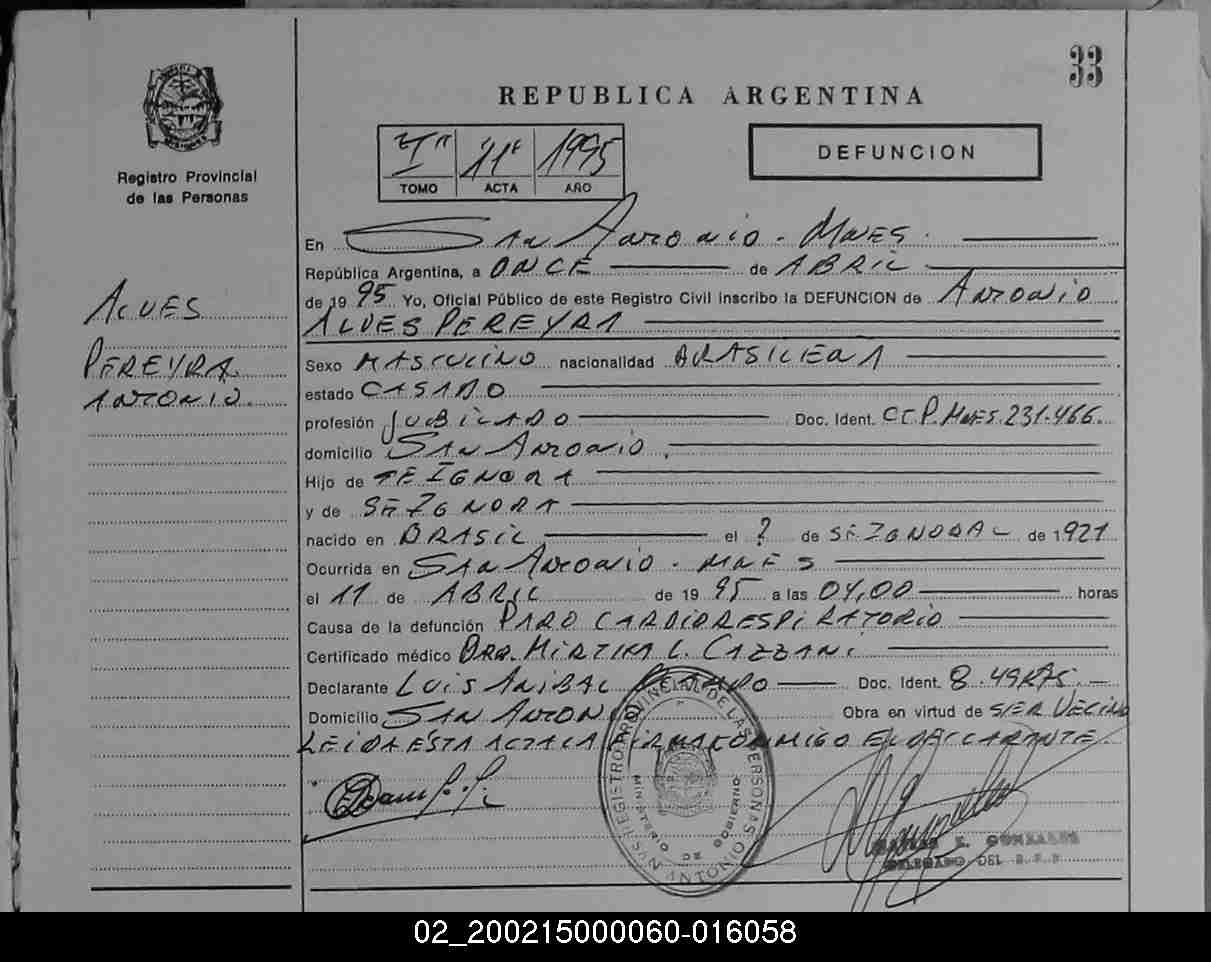 33
REPUBLICA ARGENTINA
Iº 11º 1995
TOMO ACTA AÑO
DEFUNCION
Registro Provincial
de las Personas
ALVES
PEREYRA
ANTONIO.
En SAN ANTONIO - MNES.
República Argentina, a ONCE de ABRIL
de 1995 Yo, Oficial Público de este Registro Civil inscribo la DEFUNCION de ANTONIO
ALVES PEREYRA
Sexo MASCULINO nacionalidad BRASILERA
estado CASADO
profesión JUBILADO Doc. Ident. C.I.P. MNES. 231.466.
domicilio SAN ANTONIO.
Hijo de SE IGNORA
y de SE IGNORA
nacido en BRASIL el ? de SE IGNORA de 1921
Ocurrida en SAN ANTONIO - MNES
el 11 de ABRIL de 1995 a las 04,00 horas
Causa de la defunción PARO CARDIORESPIRATORIO
Certificado médico DRA. MIRTHA L. CAZZANI
Declarante LUIS ANIBAL Doc. Ident. 8.
Domicilio SAN ANTONIO Obra en virtud de SER VECINO
LEIDA ESTA ACTA LA FIRMA CONMIGO EL DECLARANTE.
REGISTRO PROVINCIAL DE LAS PERSONAS
MINISTERIO DE GOBIERNO
SAN ANTONIO MNES
E. GONZALEZ
DELEGADO DEL R.P.P
02_200215000060-016058